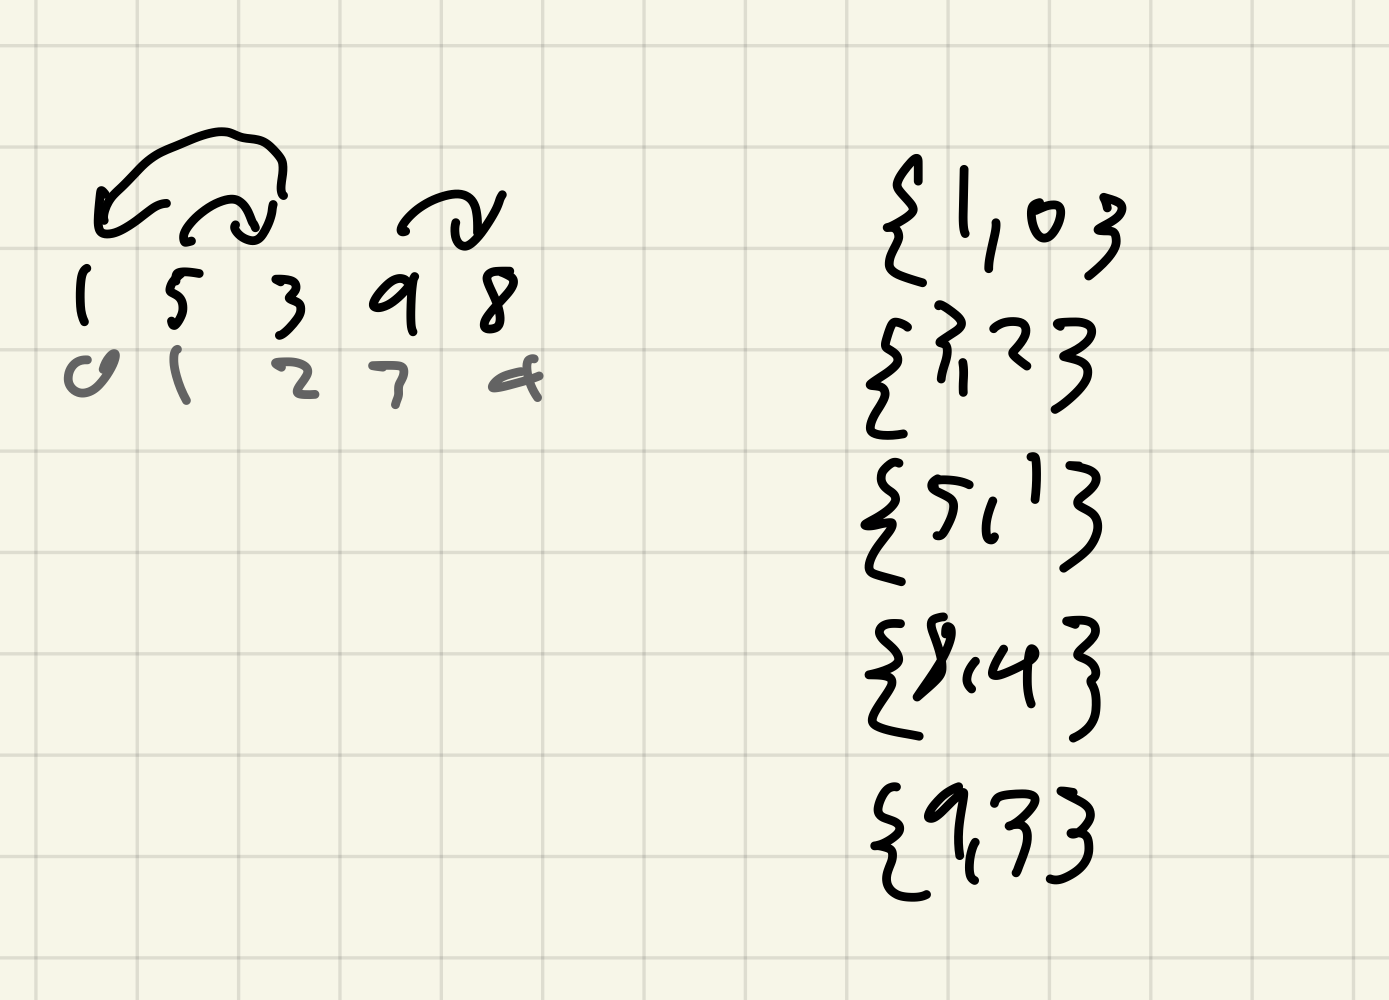 1 5 3 9 8
0 1 2 3 4
{1,0}
{3,2}
{5,1}
{8,4}
{9,3}